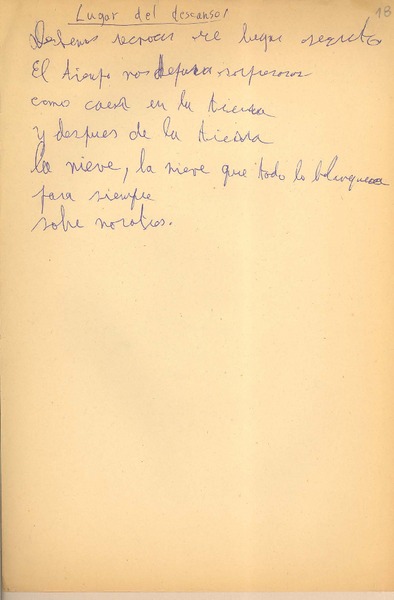 Lugar del descanso
18
Debemos conocer ese lugar secreto
El tiempo nos depara sorpresas
como caer en la tierra
y despues de la tierra
la nieve, la nieve que todo lo blanquea
para siempre
sobre nosotros.